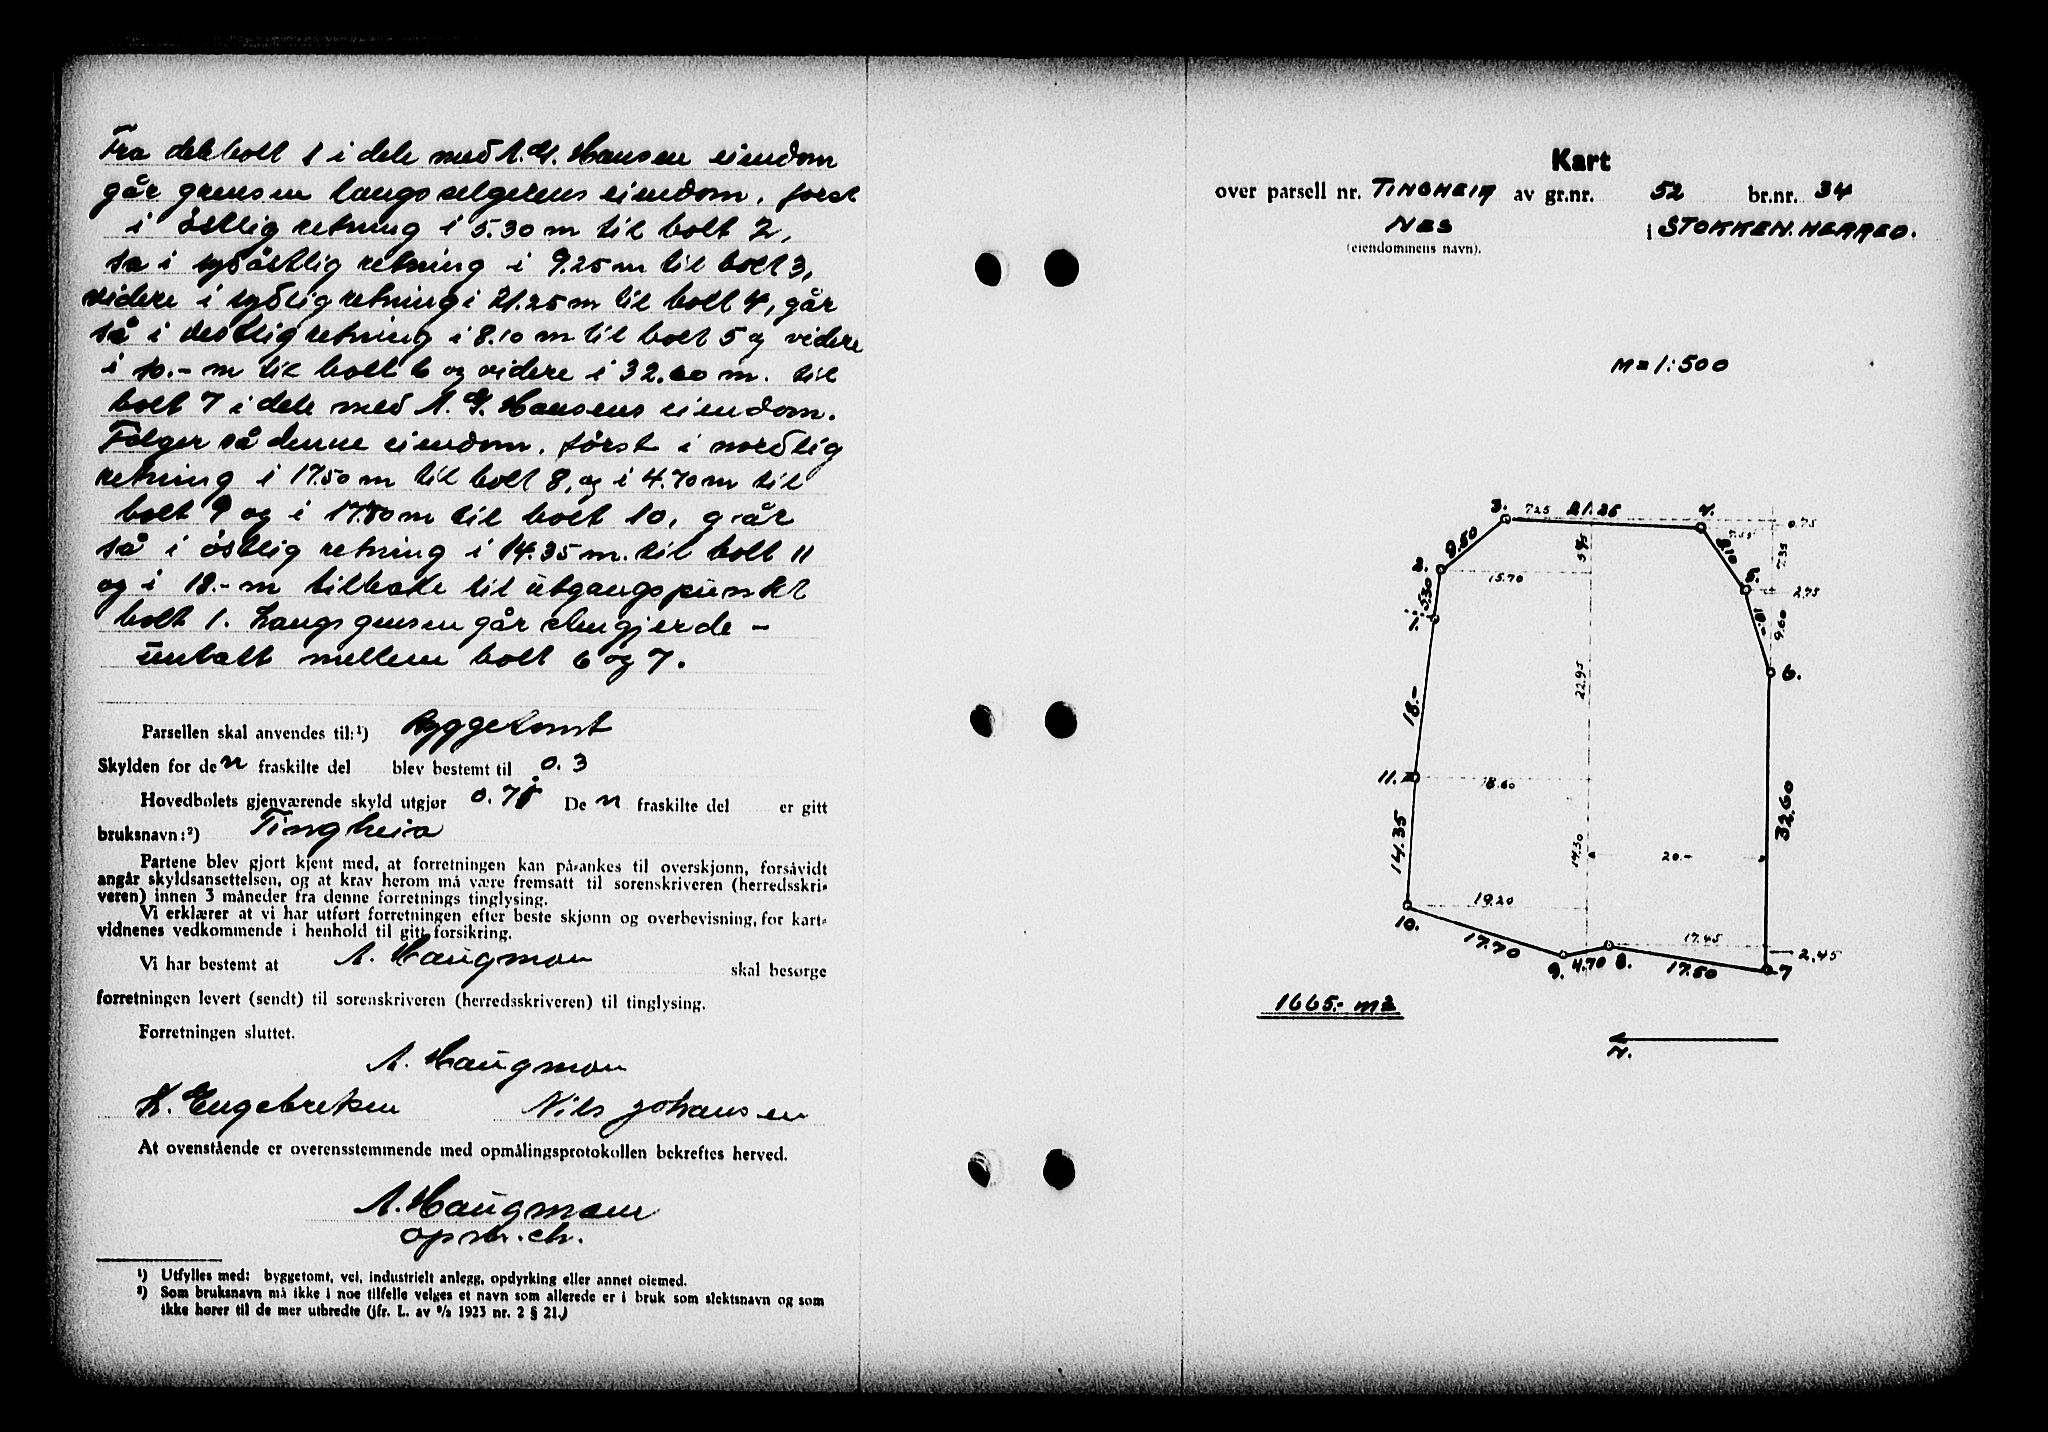 Fra delebolt 1 i dele med A. G. Hansen eiendom
går grensen langs selgerens eiendom, først
i östlig retning i 5.30 m til bolt 2,
så i sydöstlig retning i 9.25 m til bolt 3,
videre i sydlig retning i 21.25 m til bolt 4, går
så i vestlig retning i 8.10 m til bolt 5 og videre
i 10.- m til bolt 6 og videre i 32.60 m. til
bolt 7 i dele med A. G. Hansens eiendom.
Følger så denne eiendom, først i nordlig
retning i 17.50 m til bolt 8, og i 4.70 m til
bolt 9 og i 17.80 m til bolt 10, går
så i östlig retning i 14.35 m. til bolt 11
og i 18.- m tilbake til utgangspunkt
bolt 1. Langs grensen går stengjerde -
untatt mellem bolt 6 og 7.
Parsellen skal anvendes til:¹) Byggetomt
Skylden for den fraskilte del blev bestemt til 0.3
Hovedbølets gjenværende skyld utgjør 0.75 Den fraskilte del er gitt
bruksnavn:²) Tingheia
Partene blev gjort kjent med, at forretningen kan på-ankes til overskjønn, forsåvidt
angår skyldsansettelsen, og at krav herom må være fremsatt til sorenskriveren (herredsskri-
veren) innen 3 måneder fra denne forretnings tinglysing.
Vi erklærer at vi har utført forretningen efter beste skjønn og overbevisning, for kart-
vidnenes vedkommende i henhold til gitt forsikring.
Vi har bestemt at A. Haugmon skal besørge
forretningen levert (sendt) til sorenskriveren (herredsskriveren) til tinglysing.
Forretningen sluttet.
A. Haugmon
K. Engebretsen Nils Johansen
At ovenstående er overensstemmende med opmålingsprotokollen bekreftes herved.
A. Haugmoen
¹) Utfylles med: byggetomt, vei, industrielt anlegg, opdyrking eller annet øiemed.
²) Som bruksnavn må ikke i noe tilfelle velges et navn som allerede er i bruk som slektsnavn og som
ikke hører til de mer utbredte (jfr. L. av ⁹/₂ 1923 nr. 2 § 21.)
Kart
over parsell nr. TINGHEIA av gr.nr. 52 br.nr. 34
NES i STOKKEN. HERRED.
(eiendommens navn).
M = 1:500
3. 7.25 21.25 4. 0.75
9.50 5.95 7.55 8.10 7.35
2. 15.70 5. 2.75
5.30 10.- 9.60
1.
22.95 6.
18.-
11. 18.60
14.35 14.30 20.- 32.60
19.20
10.
17.70 17.45 2.45
9. 4.70 8. 17.50 7
1665.- m2
N.